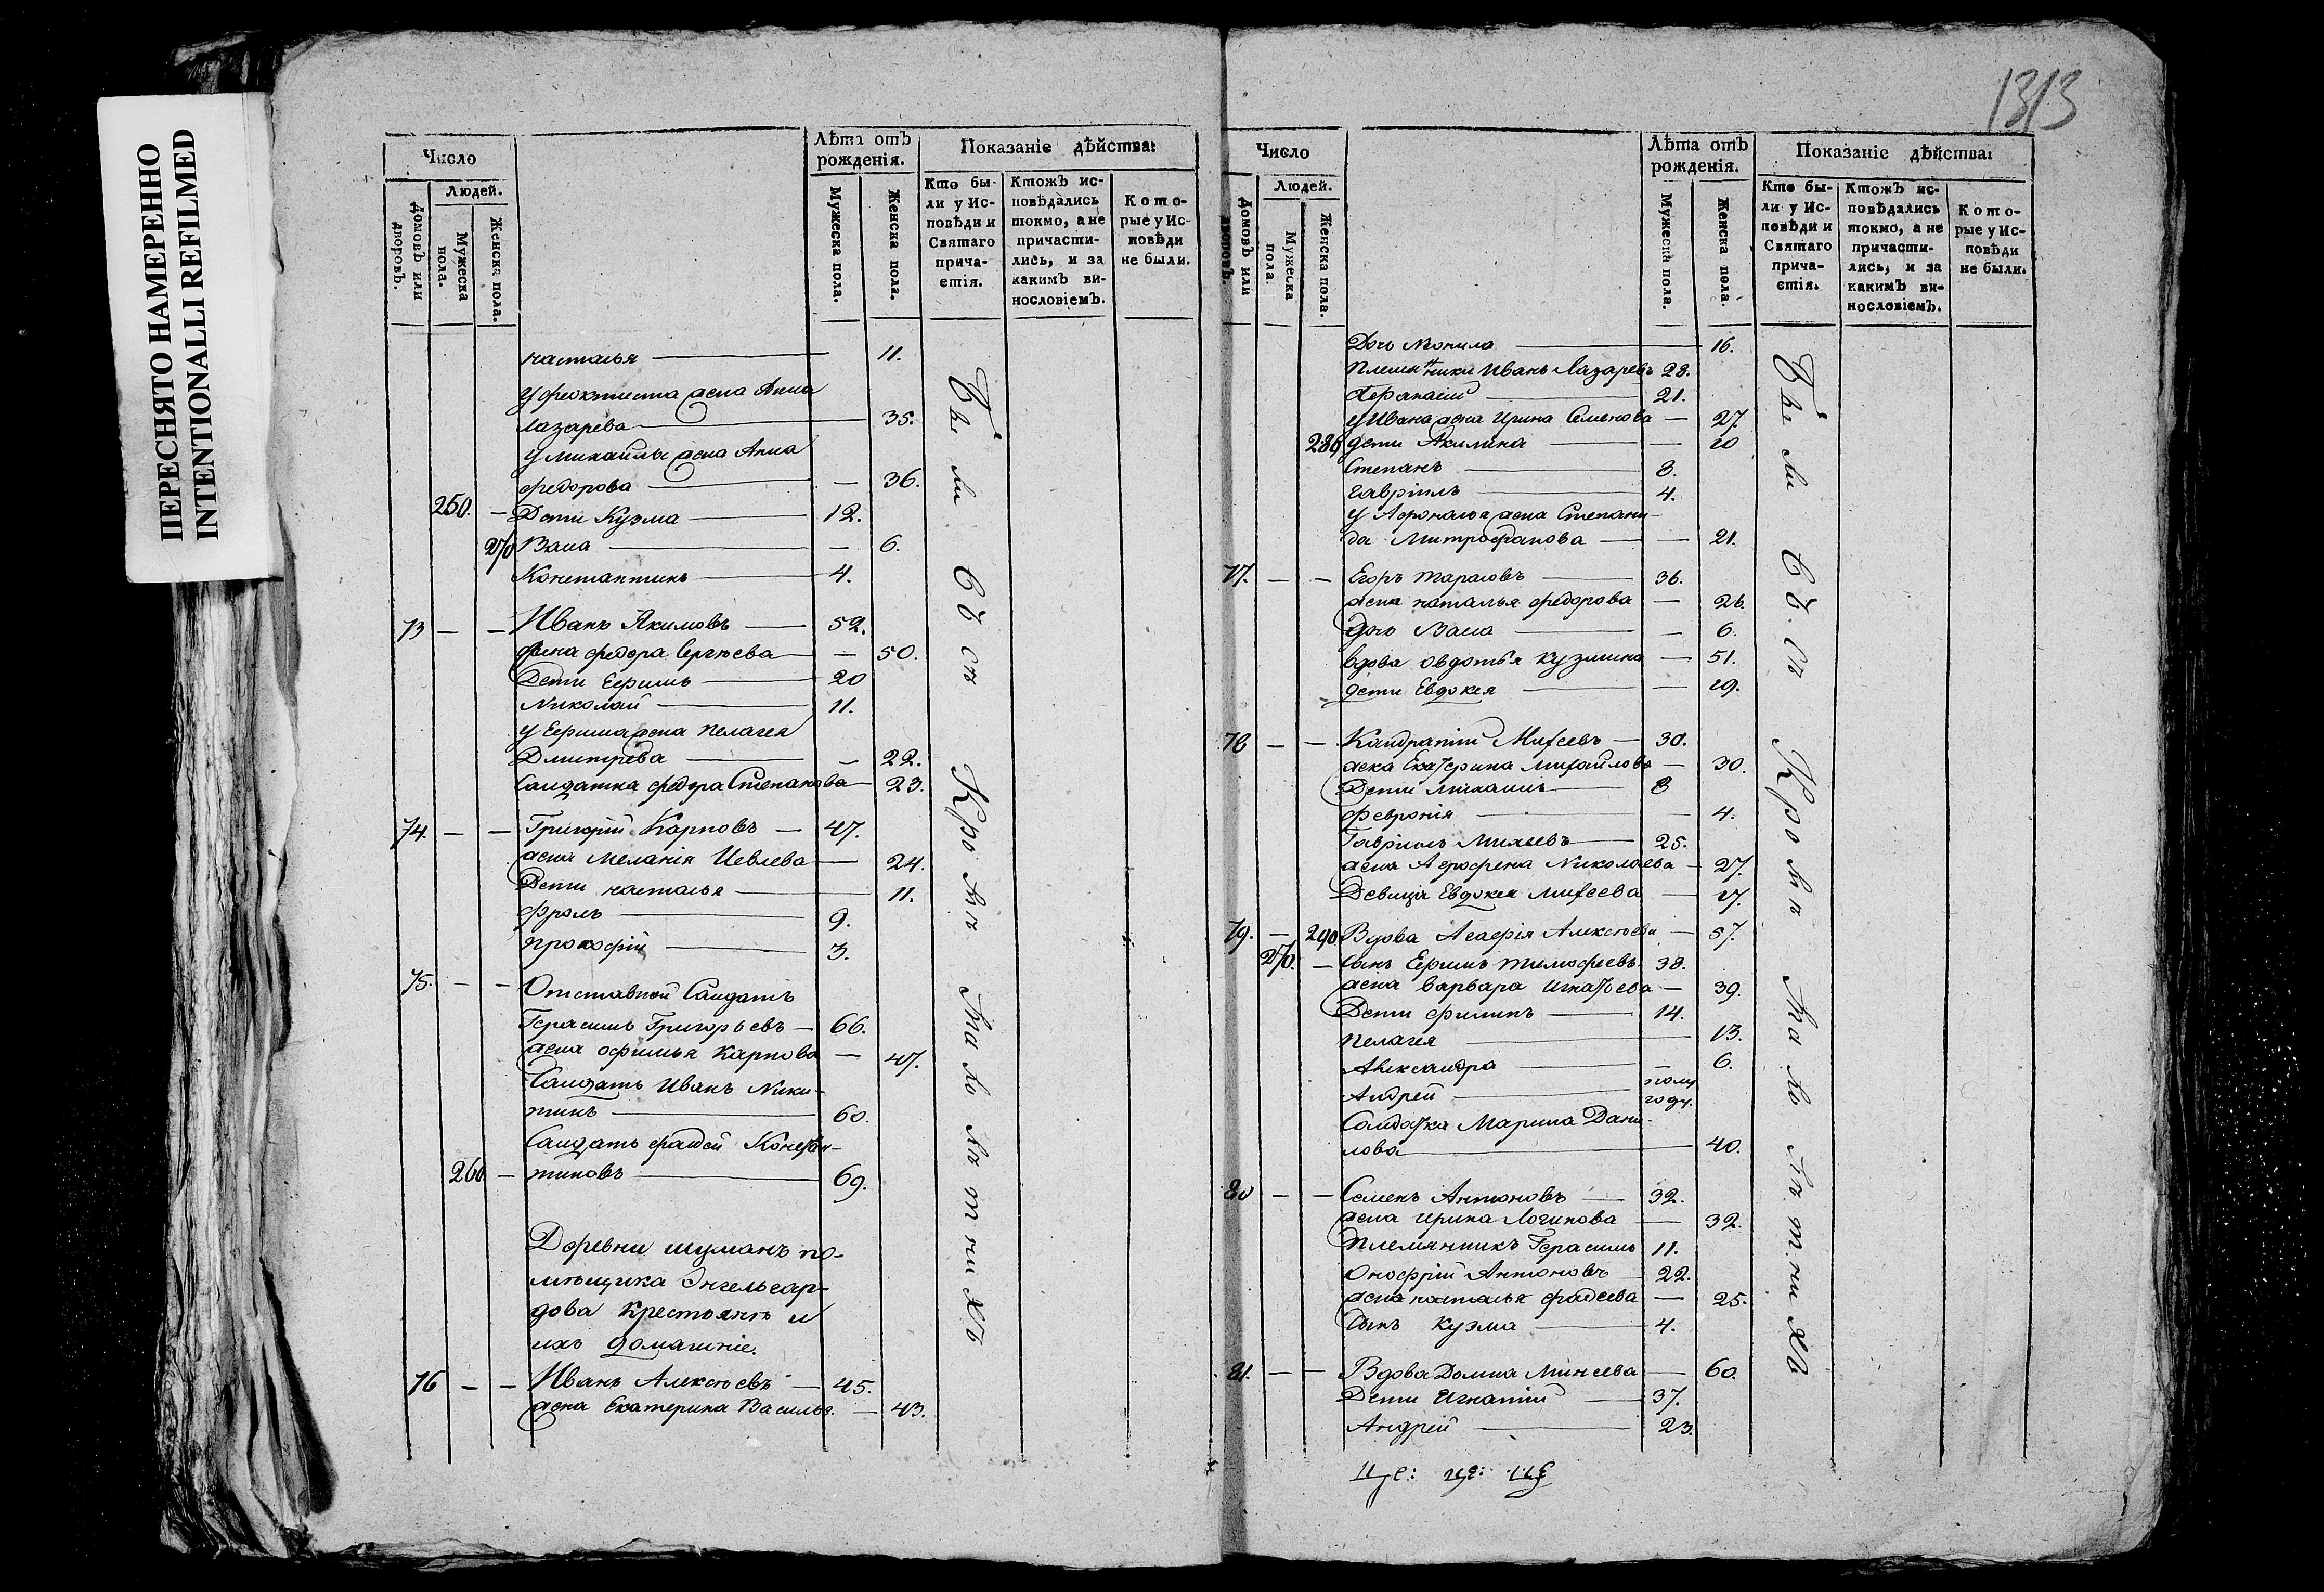 ПЕРЕСНЯТО НАМЕРЕННО
INTENTIONALLI REFILMED
1313
Число
Людей.
Домовъ или дворовъ.
Мужеска пола.
Женска пола.
Лѣта отъ рожденія.
Мужеска пола.
Женска пола.
Показаніе дѣйства:
Кто бы-
ли у Ис-
повѣди и
Святаго
прича-
стія.
Ктожъ ис-
повѣдались
токмо, а не
причасти-
лись, и за
какимъ ви-
нословіемъ.
Кото-
рые у Ис-
повѣди
не были.
настасья — 11.
у феоктиста жена Анна
лазарева — 35.
у михайлы жена Анна
федорова — 36.
250. — Дети Кузма — 12.
270 Васа — 6.
Константинъ — 4.
73 — — Иванъ Акимовъ — 52.
жена федора Сергѣева — 50.
Дети Ефимъ — 20
Николай — 11.
у Ефима жена пелагея
Дмитрева — 22.
Салдатка федора Степанова — 23.
74. — — Григорій Карповъ — 47.
жена меланія Иевлева — 24.
Дети настасья — 11.
фролъ — 9.
прокофій — 3.
75. — — Отставной Салдатъ
Герасимъ Григорьевъ — 66.
жена офимья Карпова — 47.
Салдатъ Иванъ Ники-
тинъ — 60.
Салдатъ фадей Констан-
260 — тиновъ — 69.
Деревни шуманъ по-
мѣщика Энгельгар-
дова крестоянѣ и
ихъ домашніе.
76 — — Иванъ Алексѣевъ — 45.
жена Екатерина Василье. — 43.
Бы ли всѣ Кро мѣ ма ло лѣ т ни хъ
Число
Людей.
Домовъ или дворовъ.
Мужеска пола.
Женска пола.
Лѣта отъ рожденія.
Мужеска пола.
Женска пола.
Показаніе дѣйства:
Кто бы-
ли у Ис-
повѣди и
Святаго
прича-
стія.
Ктожъ ис-
повѣдались
токмо, а не
причасти-
лись, и за
какимъ ви-
нословіемъ.
Кото-
рые у Ис-
повѣди
не были.
Дочь — 16.
племянники Иванъ Лазаревъ 28.
Афанасій — 21.
у Ивана жена Ирина Семенова — 27.
280 дети Акилина — 10
Степанъ — 8.
гавріилъ — 4.
у Афонасья жена Степани-
да Митрофанова — 21.
77. — — Егоръ тарасовъ — 36.
жена наталья федорова — 26.
дочь Васа — 6.
вдова овдотья кузмина — 51.
дети Евдокея — 19.
78 — — Кандратій Михеевъ — 30.
жена Екатерина михайлова — 30.
Дети михаилъ — 8
феврония — 4.
Гавріилъ Михеевъ — 25.
жена Агрофена Николаева — 27.
Девица Евдокея михеева — 17.
79. — 290 Вдова Агафія Алексѣева — 57.
270. — Сынъ Ефимъ тимофеевъ 38.
жена варвара игнатьева — 39.
Дети филипъ — 14.
пелагея — 13.
Александра — 6.
Андрей — полу году.
Салдатка Марина Дани-
лова — 40.
80 — — Семенъ Антоновъ — 32.
жена ирина Логинова — 32.
племянникъ Герасимъ 11.
Онофрій Антоновъ — 22.
жена наталья фадеева — 25.
Сынъ кузма — 4.
81. — — Вдова Домна Минеева — 60.
Дети Игнатій — 37.
Андрей — 23.
Бы ли всѣ Кро мѣ ма ло лѣ т ни хъ